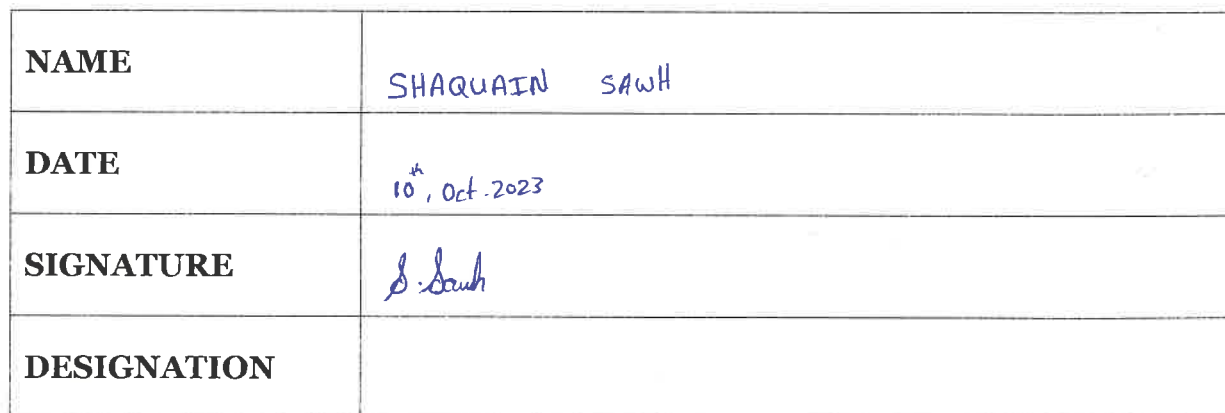 NAME SHAQUAIN SAWH
DATE 10th, Oct.2023
SIGNATURE S.Sawh
DESIGNATION